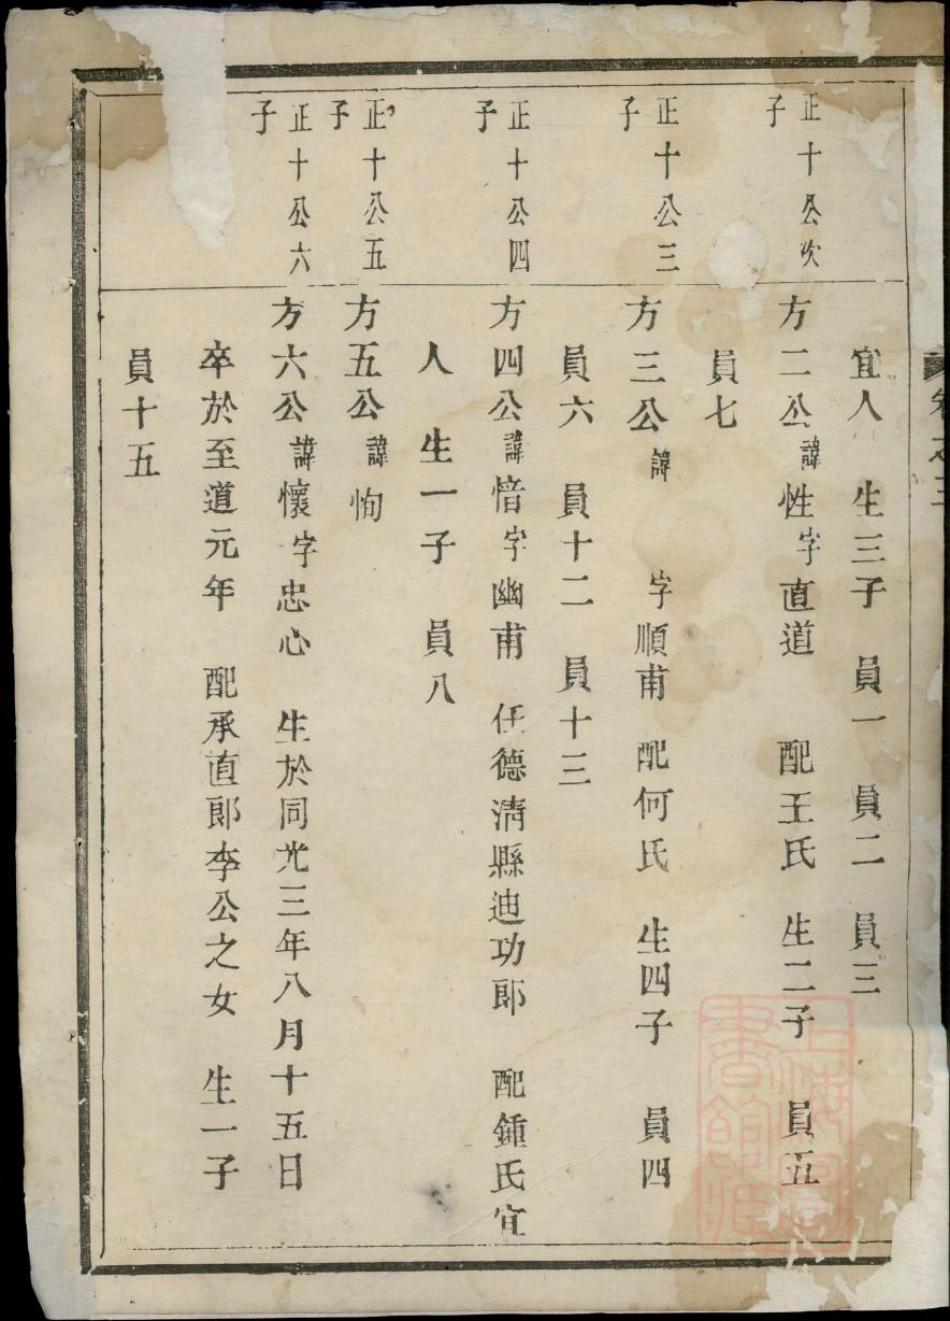 卷之三
宜人 生三子 員一 員二 員三
正十公次子
方二公諱性字直道 配王氏 生二子 員五
員七
正十公三子
方三公諱 字順甫 配何氏 生四子 員四
員六 員十二 員十三
正十公四子
方四公諱愔字幽甫 任德淸縣迪功郎 配鍾氏宜
人 生一子 員八
正十公五子
方五公諱恂
正十公六子
方六公諱懷字忠心 生於同光三年八月十五日
卒於至道元年 配承直郎李公之女 生一子
員十五
上海圖書館藏